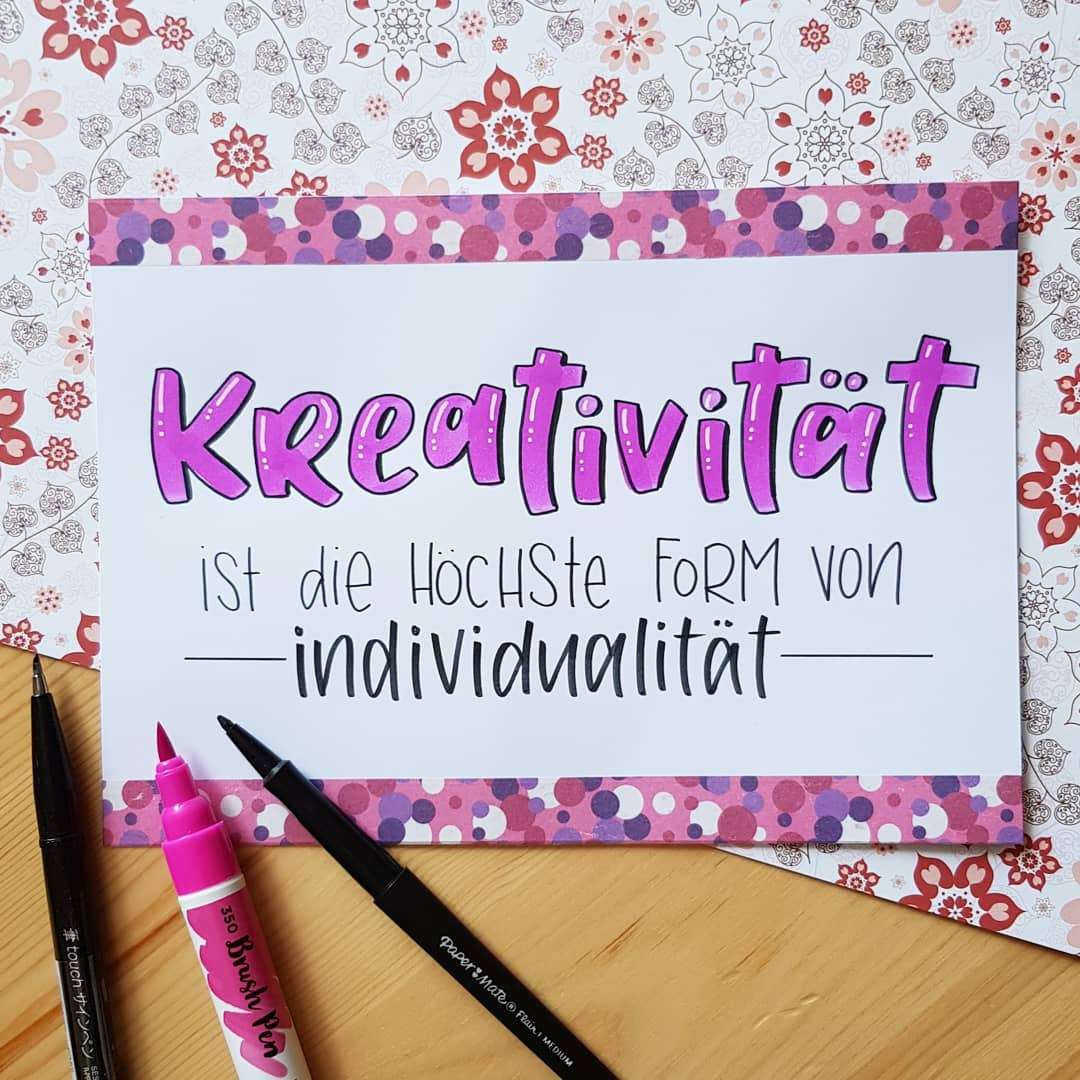 Kreativität
ist die Höchste Form von
individualität
touch サインペン
350 Brush Pen
Paper Mate ® Flair! MEDIUM